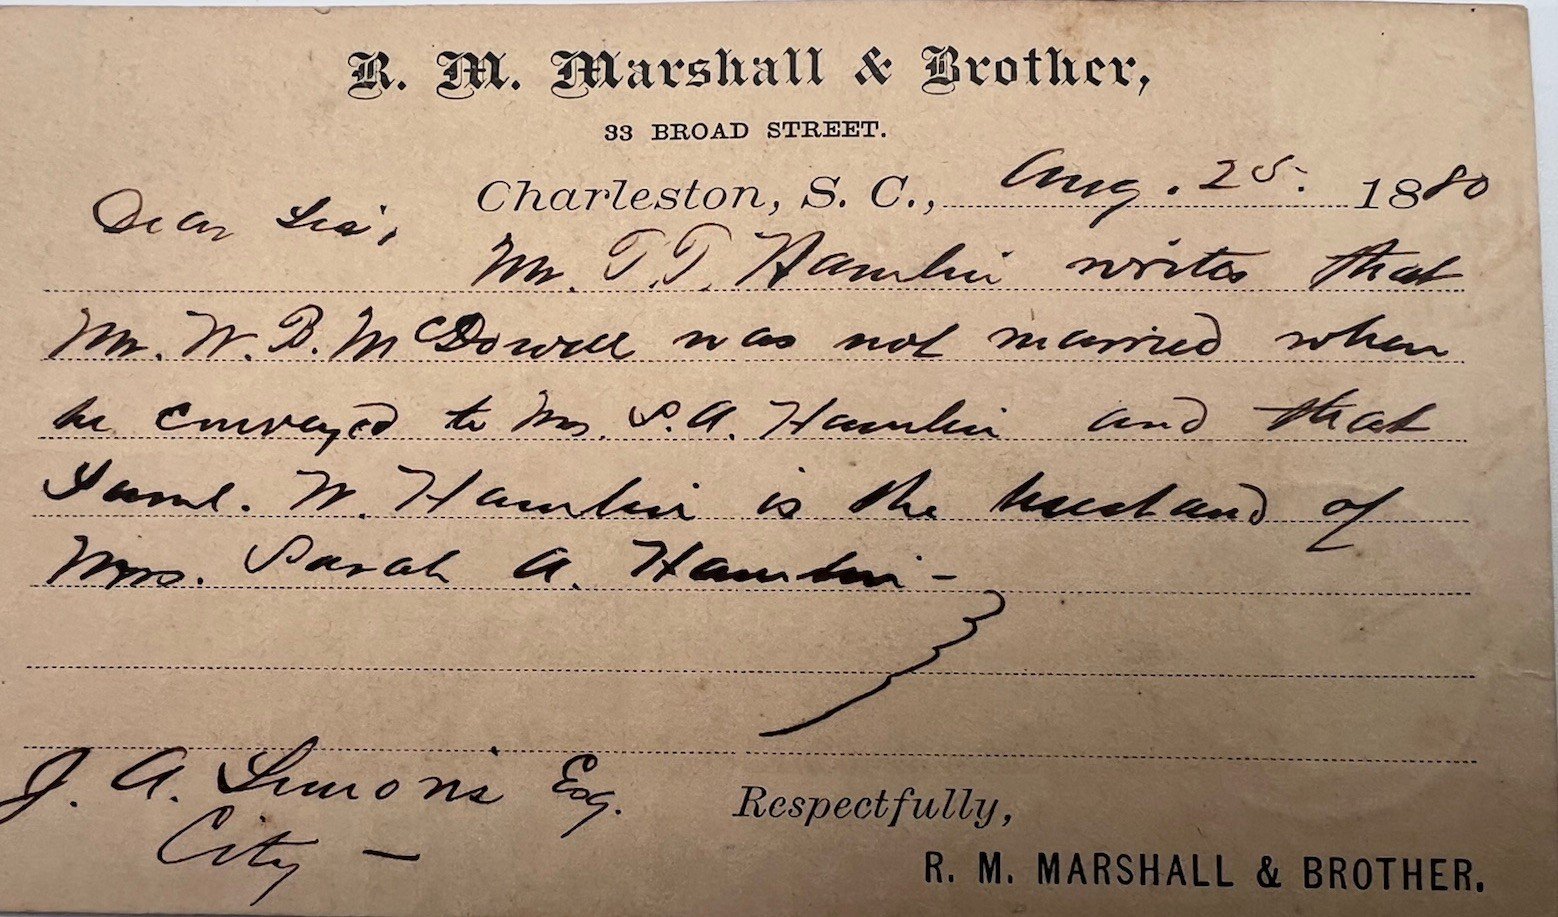 R. M. Marshall & Brother,
33 BROAD STREET.
Charleston, S. C., Aug. 25. 1880
Dear Sir,
Mr. T. T. Hamlin writes that
Mr. W. B. McDowell was not married when
he conveyed to Mrs. S. A. Hamlin and that
Saml. W. Hamlin is the husband of
Mrs. Sarah A. Hamlin -
J. A. Simons Esq.
City -
Respectfully,
R. M. MARSHALL & BROTHER.